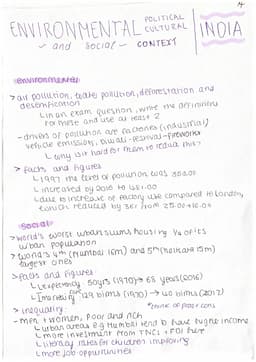 ENVIRONMENTAL POLITICAL CULTURAL INDIA
- and social - CONTEXT
environmental
> air pollution, water pollution, deforestation and
desertification
in an exam question, write the definitions
for these and use at least 2
- drivers of pollution are factories (industrial)
vehicle emissions, Diwali - festival - fireworks
why is it hard for them to reduce this?
> facts and figures
1997 the level of pollution was
increased by 2010 to
due to increase of factory use compared to London,
which reduced by from
social
> world's worst urban slums housing of its
urban population
> world's 4th (Mumbai 16m) and 5th (Kolkata 15m)
largest ones
> facts and figures
L expectancy 50yrs (1970) → 68 years (2016)
129 births (1970) → 40 births (2012)
> inequality:
- men + women, poor and rich
urban areas e.g Mumbai tend to have higher income
more investment from TNCs + FDI here
literacy rates for children improving
more job opportunities